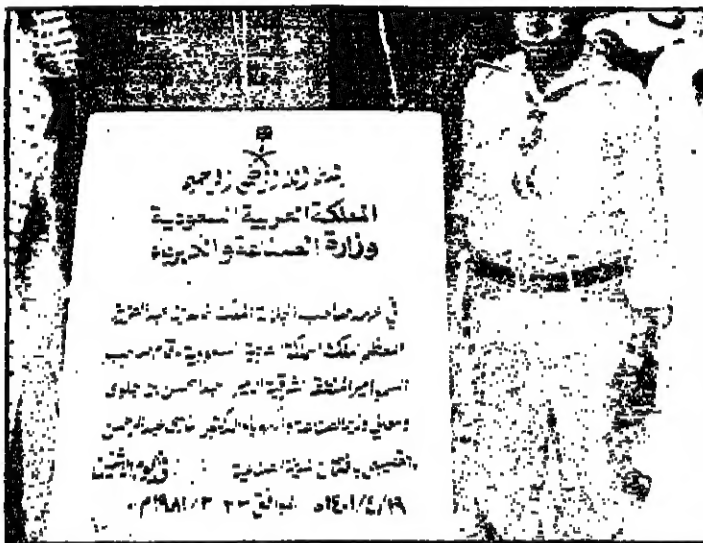 بسم الله الرحمن الرحيم
المملكة العربية السعودية
وزارة الصناعة والكهرباء
في عهد صاحب الجلالة الملك خالد بن عبدالعزيز
المعظم ملك المملكة العربية السعودية قام صاحب
السمو أمير المنطقة الشرقية الأمير عبدالمحسن بن جلوي
ومعالي وزير الصناعة والكهرباء الدكتور غازي عبدالرحمن
القصيبي بافتتاح
١٤٠١/٤/١٩ه الموافق ١٩٨١/٣ م